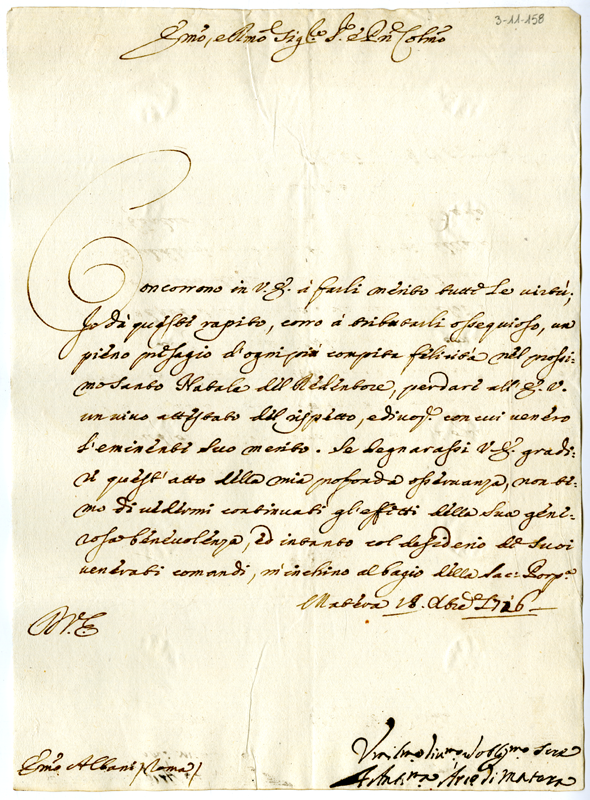 3-11-158
Emo, e Rmo Sigre Pr. e Pn Colmo
Concorrono in V. E. á farli merito tutte le virtú;
Io da queste rapito, corro á tributarli ossequioso, un
pieno presagio d'ogni piú compita felicitá nel prossi-
mo Santo Natale del Redentore, per dare all'E. V.
un vivo attestato del rispetto, e divoz. con cui venero
l'eminente suo merito. Se degnarassi V. E. gradi-
re quest'atto della mia profonda osservanza, non te-
mo di vedermi continuati gl'effetti della sua gene-
rosa benevolenza, ed intanto col desiderio de suoi
venerati comandi, m'inchino al bagio della Sac: Porp.a
Matera 18. Xbre 1716
D. V. E.
Emo Albani Roma
Um.mo Div.mo Obbl.mo Serre
Ant. Ma Arciv. di Matera